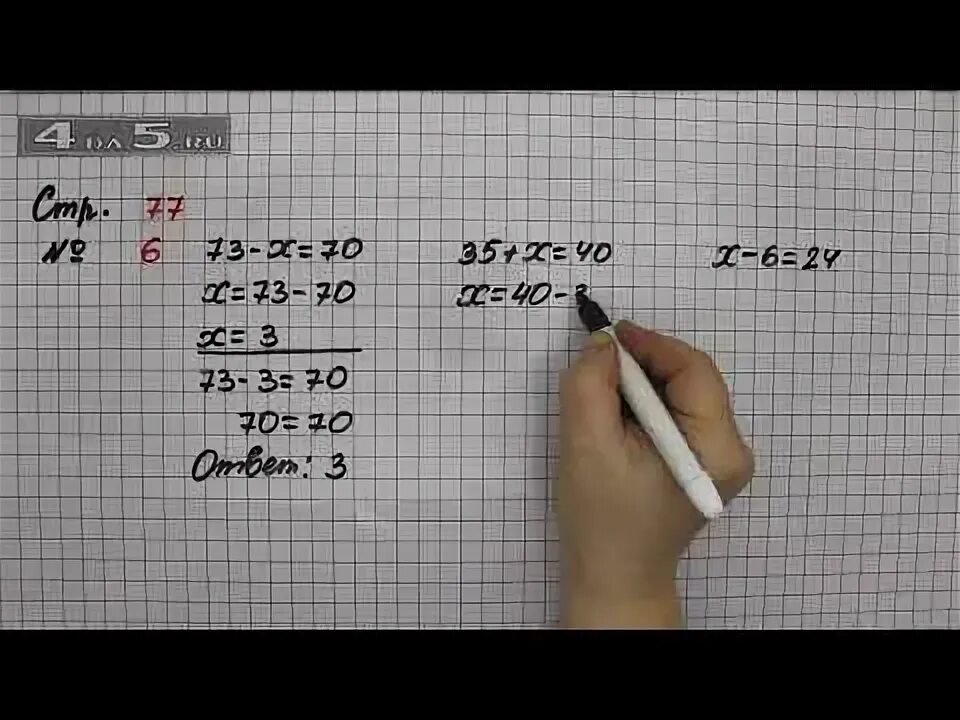 4 на 5.ru
Стр. 77
№ 6
73-x=70
x=73-70
x= 3
73-3=70
70=70
Ответ: 3
35+x=40
x=40-3
x-6=24